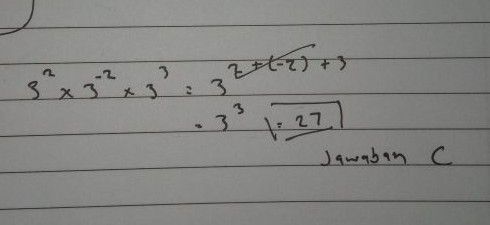 3² × 3⁻² × 3³ = 3² + (-2) + 3
= 3³ = 27
Jawaban C